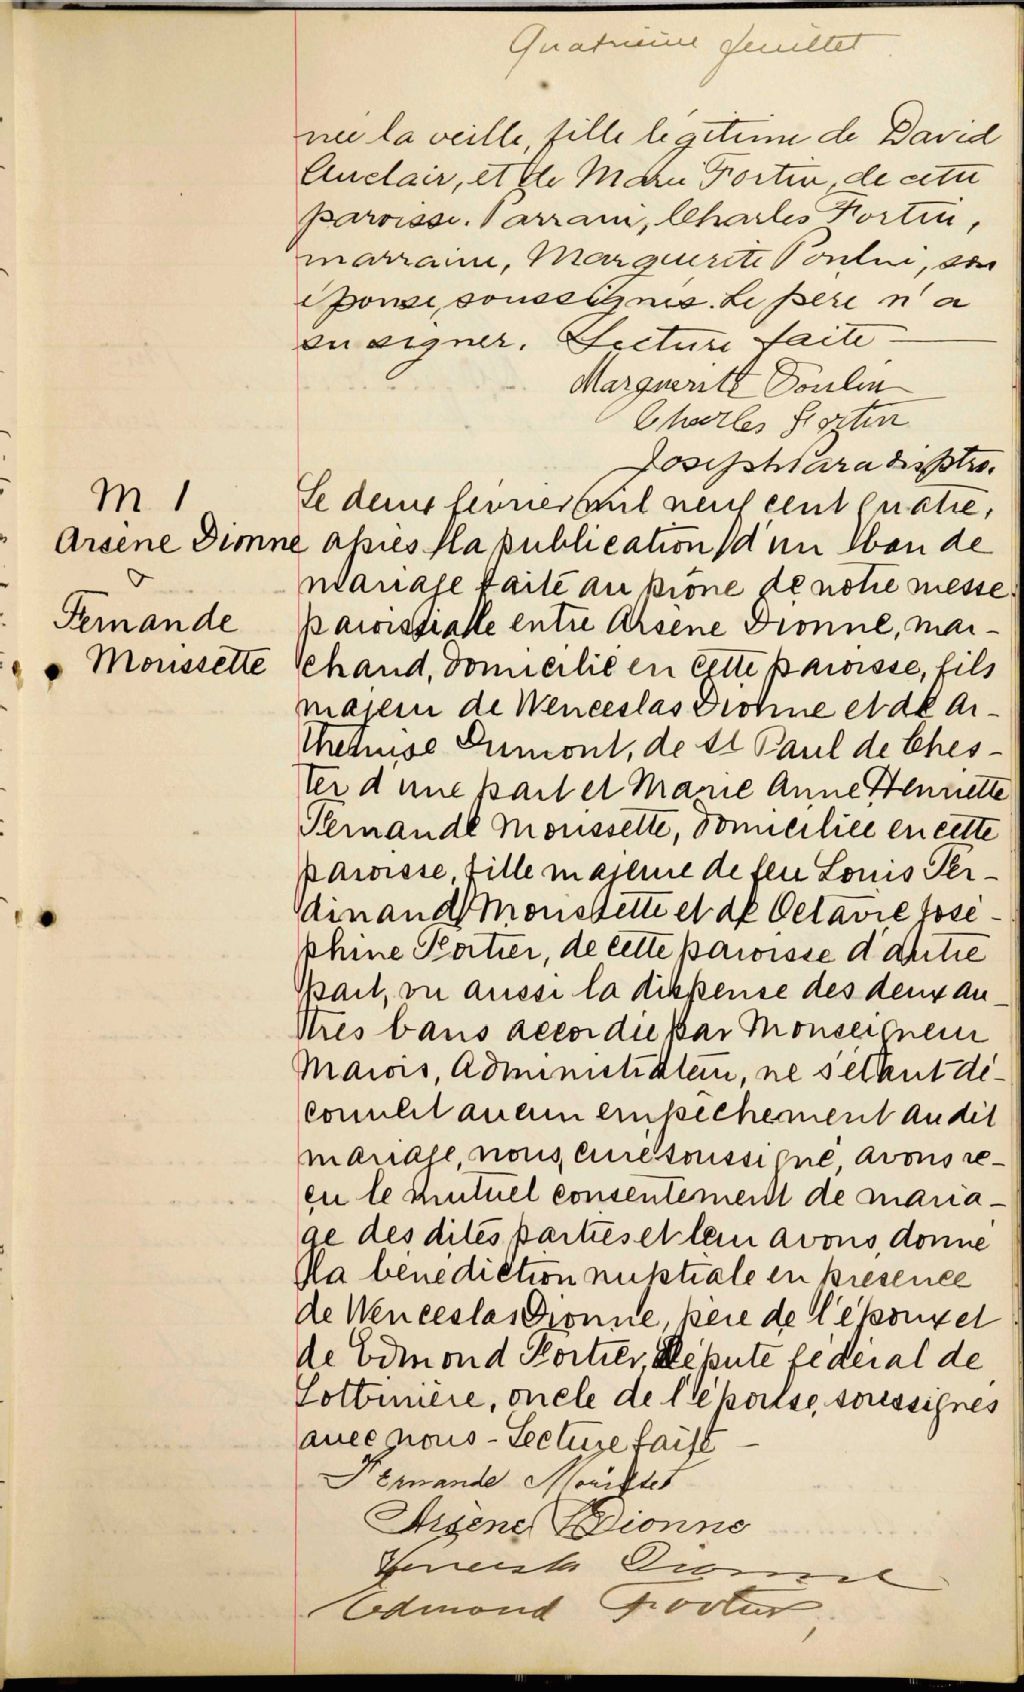 Quatrième feuillet
née la veille, fille légitime de David
Auclair, et de Marie Fortin, de cette
paroisse. Parrain, Charles Fortin,
marraine, Marguerite Poulin, son
épouse, soussignés. Le père n'a
su signer. Lecture faite —
Marguerite Poulin
Charles Fortin
Joseph Paradis ptre.
M 1
Arsène Dionne
&
Fernande
Morissette
Le deux février mil neuf cent quatre,
après la publication d'un ban de
mariage faite au prône de notre messe
paroissiale entre Arsène Dionne, mar-
chand, domicilié en cette paroisse, fils
majeur de Wenceslas Dionne et de Ar-
themise Dumont, de St Paul de Ches-
ter d'une part et Marie Anne Henriette
Fernande Morissette, domiciliée en cette
paroisse, fille majeure de feu Louis Fer-
dinand Morissette et de Octavie José-
phine Fortier, de cette paroisse d'autre
part, vu aussi la dispense des deux au-
tres bans accordée par Monseigneur
Marois, Administrateur, ne s'étant dé-
couvert aucun empêchement au dit
mariage, nous, curé soussigné, avons re-
çu le mutuel consentement de maria-
ge des dites parties et leur avons donné
la bénédiction nuptiale en présence
de Wenceslas Dionne, père de l'époux et
de Edmond Fortier, Député fédéral de
Lotbinière, oncle de l'épouse, soussignés
avec nous - Lecture faite -
Fernande Morisset
Arsène Dionne
Venceslas Dionne
Edmond Fortier,